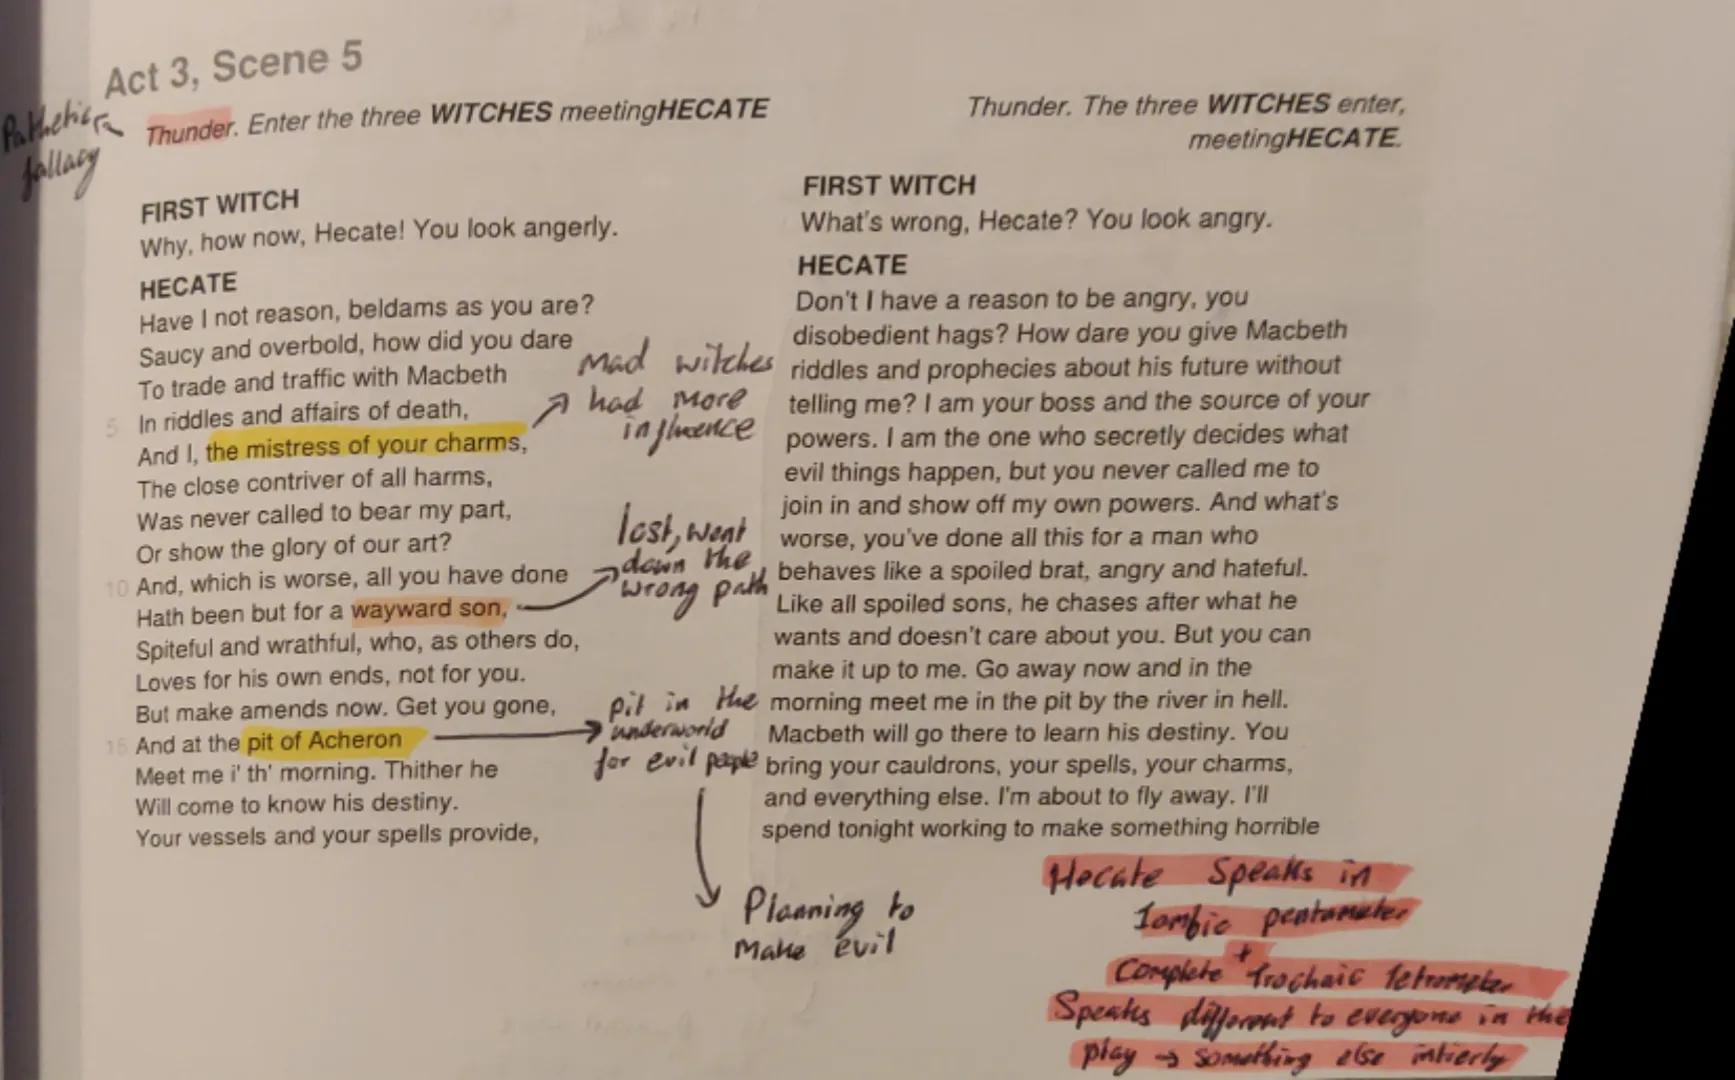 Act 3, Scene 5
Pathetic
fallacy
Thunder. Enter the three WITCHES meetingHECATE
FIRST WITCH
Why, how now, Hecate! You look angerly.
HECATE
Have I not reason, beldams as you are?
Saucy and overbold, how did you dare
To trade and traffic with Macbeth
5 In riddles and affairs of death,
And I, the mistress of your charms,
The close contriver of all harms,
Was never called to bear my part,
Or show the glory of our art?
10 And, which is worse, all you have done
Hath been but for a wayward son,
Spiteful and wrathful, who, as others do,
Loves for his own ends, not for you.
But make amends now. Get you gone,
15 And at the pit of Acheron
Meet me i' th' morning. Thither he
Will come to know his destiny.
Your vessels and your spells provide,
Mad witches
had more
influence
lost, went
down the
wrong path
pit in the
underworld
for evil people
Planning to
make evil
Thunder. The three WITCHES enter,
meetingHECATE.
FIRST WITCH
What's wrong, Hecate? You look angry.
HECATE
Don't I have a reason to be angry, you
disobedient hags? How dare you give Macbeth
riddles and prophecies about his future without
telling me? I am your boss and the source of your
powers. I am the one who secretly decides what
evil things happen, but you never called me to
join in and show off my own powers. And what's
worse, you've done all this for a man who
behaves like a spoiled brat, angry and hateful.
Like all spoiled sons, he chases after what he
wants and doesn't care about you. But you can
make it up to me. Go away now and in the
morning meet me in the pit by the river in hell.
Macbeth will go there to learn his destiny. You
bring your cauldrons, your spells, your charms,
and everything else. I'm about to fly away. I'll
spend tonight working to make something horrible
Hecate Speaks in
Iambic pentameter
+
Complete Trochaic tetrameter
Speaks different to everyone in the
play → something else intierly